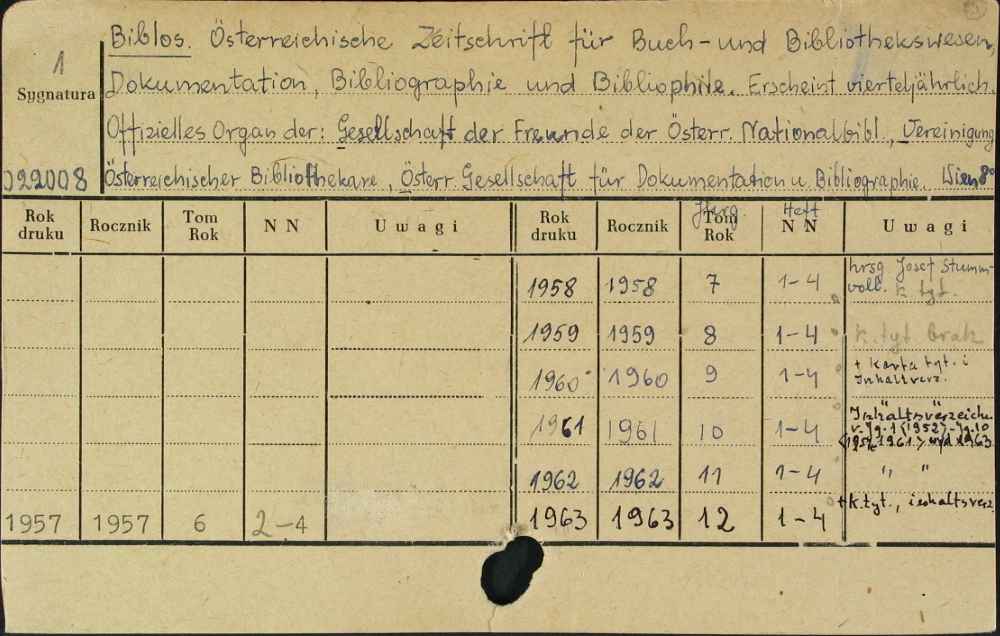 Biblos. Österreichische Zeitschrift für Buch- und Bibliothekswesen,
1
Sygnatura
Dokumentation, Bibliographie und Bibliophilie. Erscheint vierteljährlich.
Offizielles Organ der: Gesellschaft der Freunde der Österr. Nationalbibl., Vereinigung
022008
Österreichischer Bibliothekare, Österr. Gesellschaft für Dokumentation u. Bibliographie. Wien 8°
Jhrg. Heft
Rok druku Rocznik Tom Rok N N Uwagi Rok druku Rocznik Tom Rok N N Uwagi
1958 1958 7 1-4 hrsg Josef Stumm-
voll. k. tyt.
1959 1959 8 1-4 k. tyt brak
1960 1960 9 1-4 + karta tyt. i
Inhaltverz.
1961 1961 10 1-4 Inhaltsverzeichn.
v. Jg. 1 (1952) - Jg. 10
1962 1962 11 1-4 " "
1957 1957 6 2-4 1963 1963 12 1-4 + k. tyt., inhaltsverz